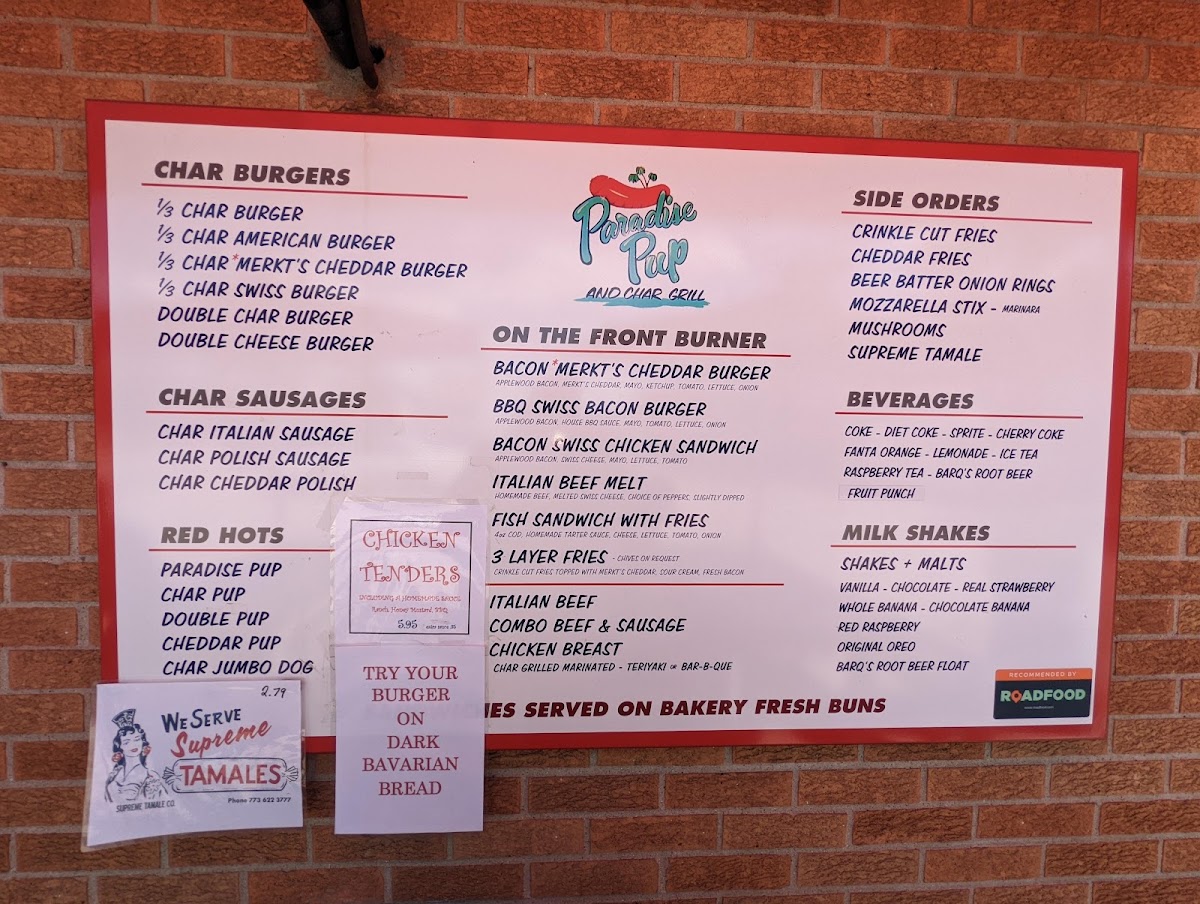 CHAR BURGERS
1/3 CHAR BURGER
1/3 CHAR AMERICAN BURGER
1/3 CHAR *MERKT'S CHEDDAR BURGER
1/3 CHAR SWISS BURGER
DOUBLE CHAR BURGER
DOUBLE CHEESE BURGER
CHAR SAUSAGES
CHAR ITALIAN SAUSAGE
CHAR POLISH SAUSAGE
CHAR CHEDDAR POLISH
RED HOTS
PARADISE PUP
CHAR PUP
DOUBLE PUP
CHEDDAR PUP
CHAR JUMBO DOG
2.79
WE SERVE
Supreme
TAMALES
SUPREME TAMALE CO.
Phone 773 622 3777
CHICKEN
TENDERS
INCLUDING A HOMEMADE SAUCE
Ranch, Honey Mustard, BBQ
5.95
TRY YOUR
BURGER
ON
DARK
BAVARIAN
BREAD
Paradise
Pup
AND CHAR GRILL
ON THE FRONT BURNER
BACON *MERKT'S CHEDDAR BURGER
APPLEWOOD BACON, MERKT'S CHEDDAR, MAYO, KETCHUP, TOMATO, LETTUCE, ONION
BBQ SWISS BACON BURGER
APPLEWOOD BACON, HOUSE BBQ SAUCE, MAYO, TOMATO, LETTUCE, ONION
BACON SWISS CHICKEN SANDWICH
APPLEWOOD BACON, SWISS CHEESE, MAYO, LETTUCE, TOMATO
ITALIAN BEEF MELT
HOMEMADE BEEF, MELTED SWISS CHEESE, CHOICE OF PEPPERS, SLIGHTLY DIPPED
FISH SANDWICH WITH FRIES
4oz COD, HOMEMADE TARTER SAUCE, CHEESE, LETTUCE, TOMATO, ONION
3 LAYER FRIES - CHIVES ON REQUEST
CRINKLE CUT FRIES TOPPED WITH MERKT'S CHEDDAR, SOUR CREAM, FRESH BACON
ITALIAN BEEF
COMBO BEEF & SAUSAGE
CHICKEN BREAST
CHAR GRILLED MARINATED - TERIYAKI OR BAR-B-QUE
SERVED ON BAKERY FRESH BUNS
SIDE ORDERS
CRINKLE CUT FRIES
CHEDDAR FRIES
BEER BATTER ONION RINGS
MOZZARELLA STIX - MARINARA
MUSHROOMS
SUPREME TAMALE
BEVERAGES
COKE - DIET COKE - SPRITE - CHERRY COKE
FANTA ORANGE - LEMONADE - ICE TEA
RASPBERRY TEA - BARQ'S ROOT BEER
FRUIT PUNCH
MILK SHAKES
SHAKES + MALTS
VANILLA - CHOCOLATE - REAL STRAWBERRY
WHOLE BANANA - CHOCOLATE BANANA
RED RASPBERRY
ORIGINAL OREO
BARQ'S ROOT BEER FLOAT
RECOMMENDED BY
ROADFOOD